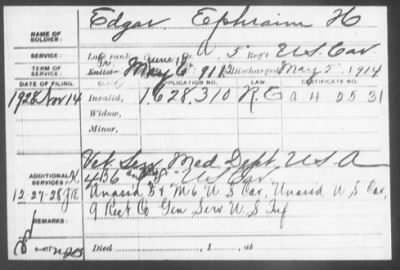 Edgar Ephraim H
NAME OF SOLDIER:
SERVICE: Late rank, Co. 5 Reg't U.S. Cav
TERM OF SERVICE: Enlisted May 6 Discharged May 5, 1914
DATE OF FILING. CLASS. APPLICATION NO. LAW. CERTIFICATE NO.
1928 Nov 14 Invalid, 1.628,310 R.O a 4 05 31
Widow,
Minor,
Vet Serv Med Dept U S A
ADDITIONAL SERVICES:
Unassd 5 & M 6 U S Cav, Unassd U S Cav,
12-27-28 9 Rect Co Gen Serv U S Inf
REMARKS:
Died , 1 , at